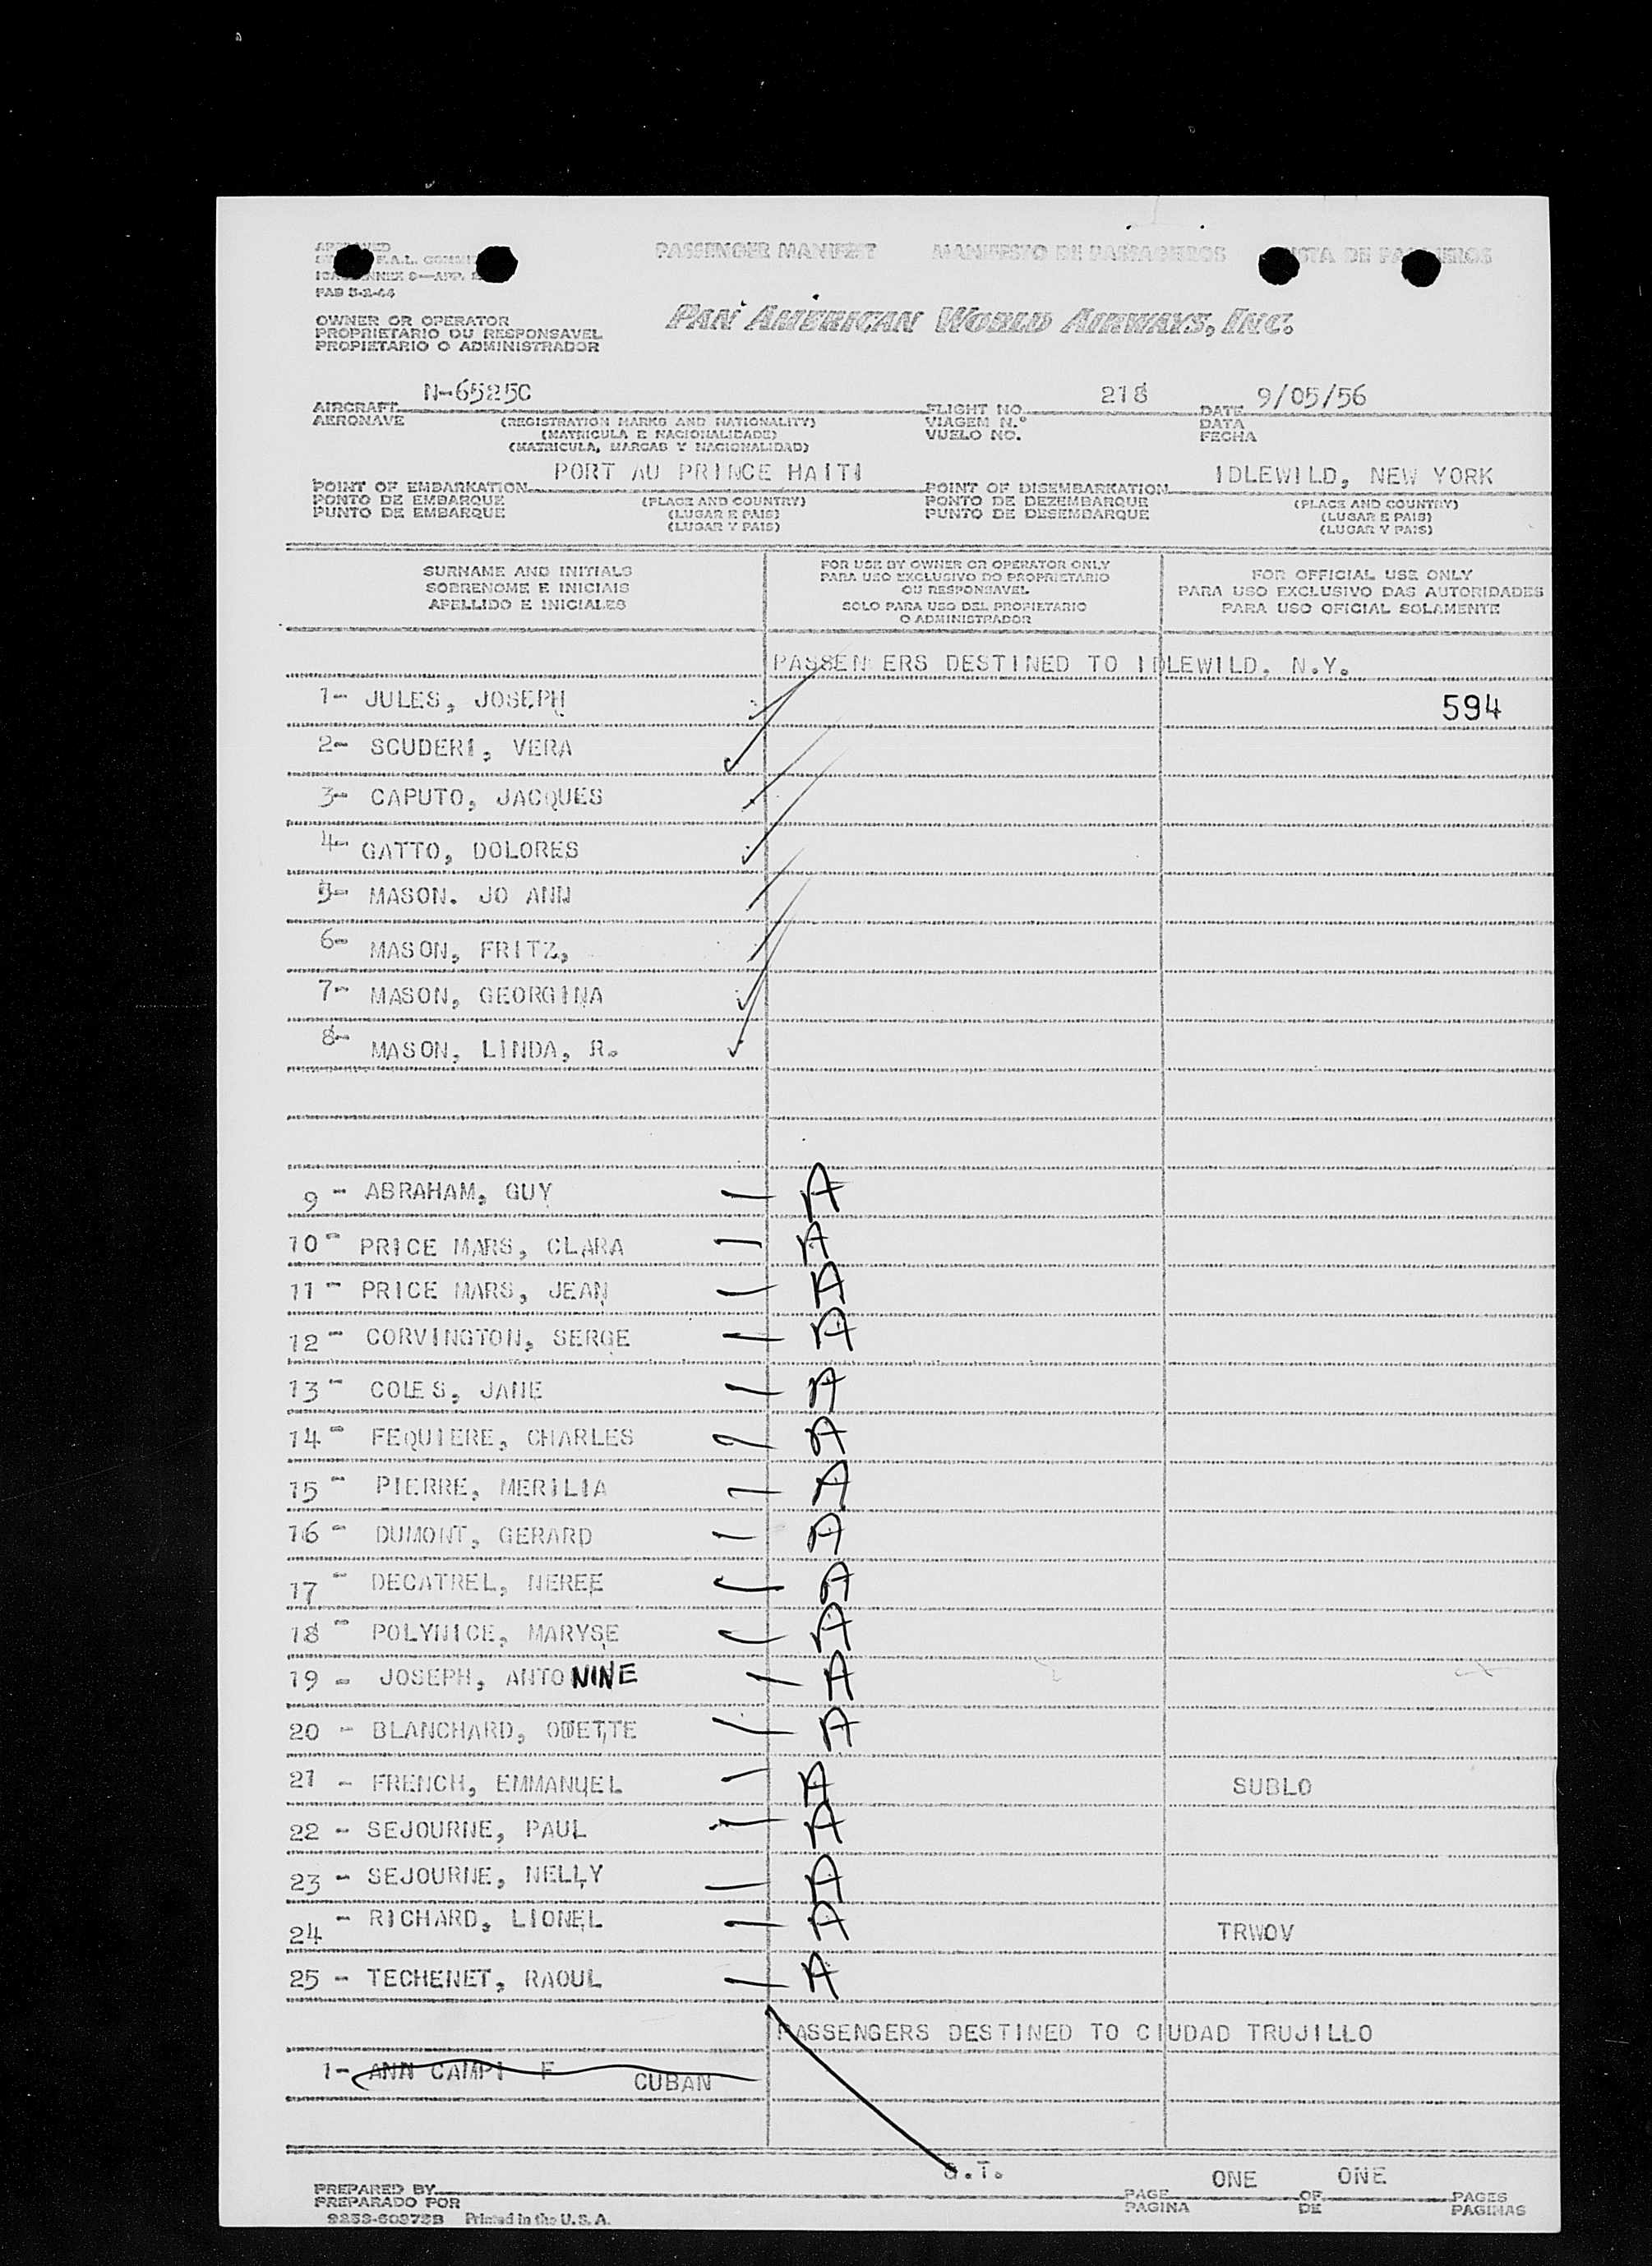 PASSENGER MANIFEST MANIFESTO DE PASSAGEIROS
FAB 5-2-44
OWNER OR OPERATOR
PROPRIETARIO OU RESPONSAVEL
PROPIETARIO O ADMINISTRADOR
PAN AMERICAN WORLD AIRWAYS, INC.
AIRCRAFT N-6525C FLIGHT NO. 218 DATE 9/05/56
AERONAVE (REGISTRATION MARKS AND NATIONALITY) VIAGEM N.º DATA
(MATRICULA E NACIONALIDADE) VUELO NO. FECHA
(MATRICULA, MARCAS Y NACIONALIDAD)
POINT OF EMBARKATION PORT AU PRINCE HAITI POINT OF DISEMBARKATION IDLEWILD, NEW YORK
PONTO DE EMBARQUE (PLACE AND COUNTRY) PONTO DE DEZEMBARQUE (PLACE AND COUNTRY)
PUNTO DE EMBARQUE (LUGAR E PAIS) PUNTO DE DESEMBARQUE (LUGAR E PAIS)
(LUGAR Y PAIS) (LUGAR Y PAIS)
SURNAME AND INITIALS FOR USE BY OWNER OR OPERATOR ONLY FOR OFFICIAL USE ONLY
SOBRENOME E INICIAIS PARA USO EXCLUSIVO DO PROPRIETARIO OU RESPONSAVEL PARA USO EXCLUSIVO DAS AUTORIDADES
APELLIDO E INICIALES SOLO PARA USO DEL PROPIETARIO O ADMINISTRADOR PARA USO OFICIAL SOLAMENTE
PASSEN ERS DESTINED TO IDLEWILD. N.Y.
1- JULES, JOSEPH 594
2- SCUDERI, VERA
3- CAPUTO, JACQUES
4- GATTO, DOLORES
5- MASON. JO ANN
6- MASON, FRITZ,
7- MASON, GEORGINA
8- MASON, LINDA, R.
9 - ABRAHAM, GUY A
10- PRICE MARS, CLARA A
11 - PRICE MARS, JEAN A
12 - CORVINGTON, SERGE A
13 - COLES, JANE A
14 - FEQUIERE, CHARLES A
15 - PIERRE, MERILIA A
16 - DUMONT, GERARD A
17 - DECATREL, NEREE A
18 - POLYNICE, MARYSE A
19 - JOSEPH, ANTONINE A
20 - BLANCHARD, ODETTE A
21 - FRENCH, EMMANUEL A SUBLO
22 - SEJOURNE, PAUL A
23 - SEJOURNE, NELLY A
24 - RICHARD, LIONEL A TRWOV
25 - TECHENET, RAOUL A
PASSENGERS DESTINED TO CIUDAD TRUJILLO
1- ANN CAMPI F CUBAN
PREPARED BY PAGE ONE OF ONE PAGES
PREPARADO POR PAGINA DE PAGINAS
9253-60372B Printed in the U.S.A.